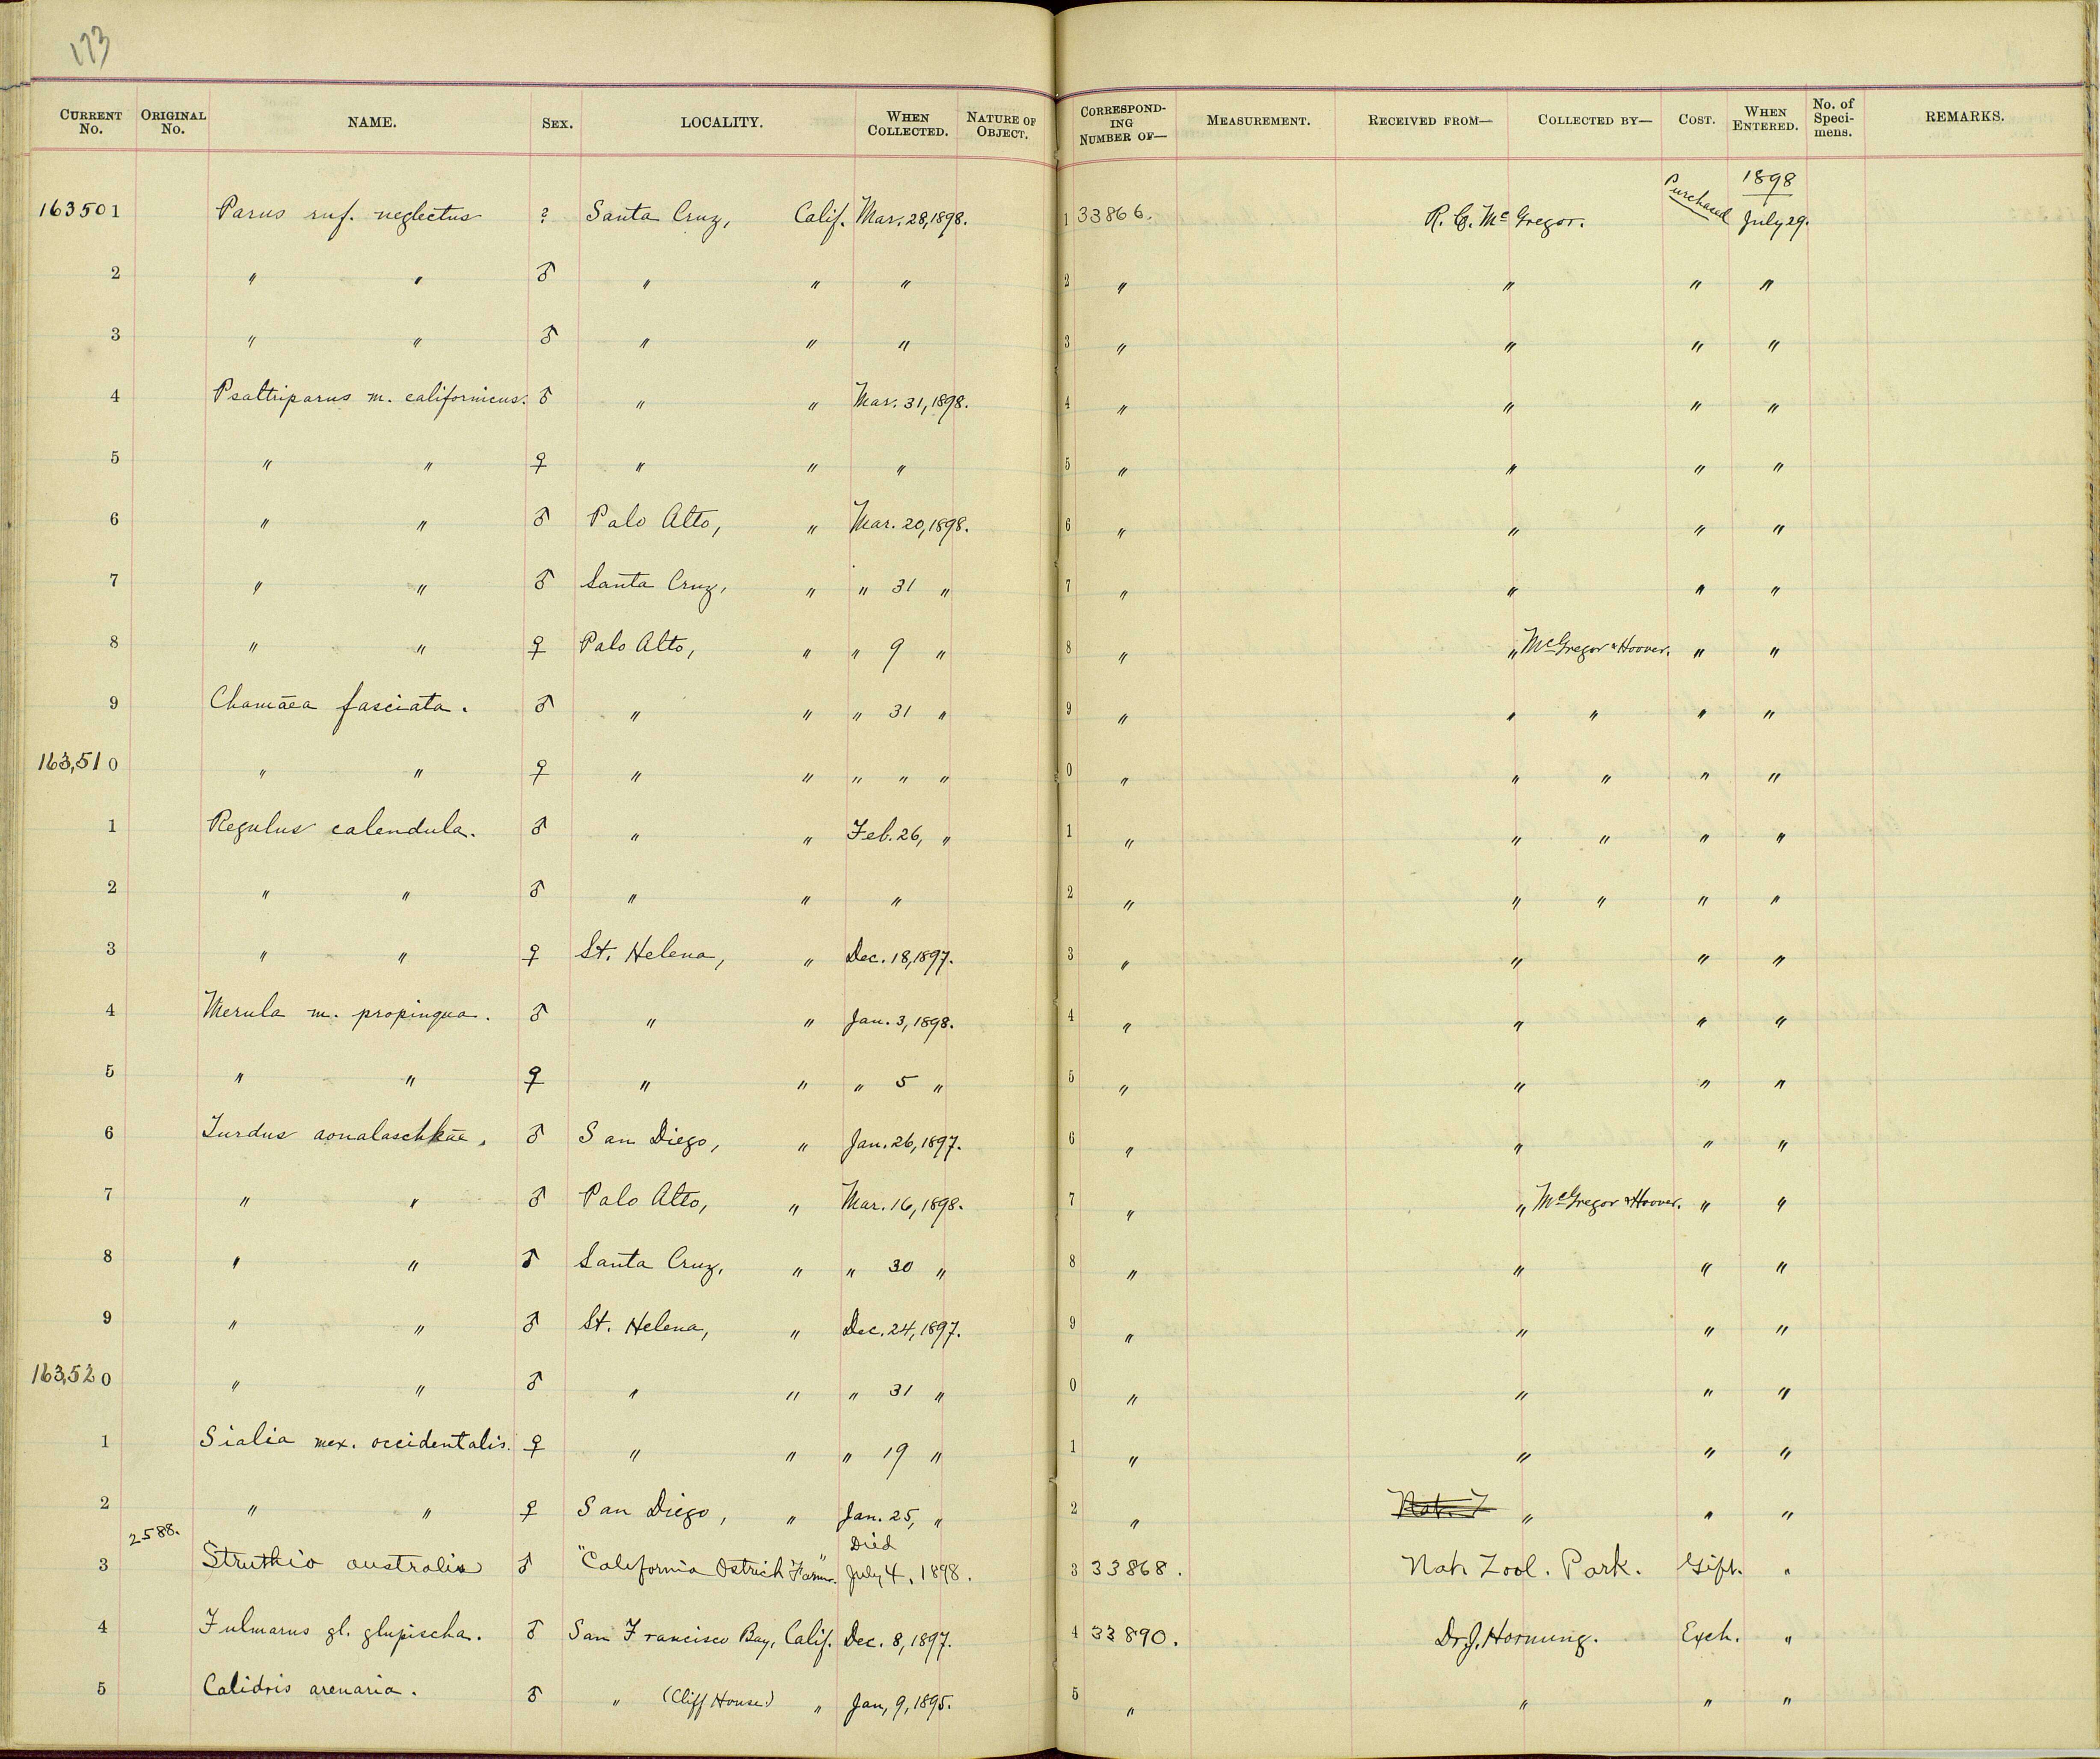 173
CURRENT No. ORIGINAL No. NAME. SEX. LOCALITY. WHEN COLLECTED. NATURE OF OBJECT. CORRESPONDING NUMBER OF— MEASUREMENT. RECEIVED FROM— COLLECTED BY— COST. WHEN ENTERED. No. of Specimens. REMARKS.
1898
163501 Parus ruf. neglectus ? Santa Cruz, Calif. Mar. 28, 1898. 1 33866. R. C. McGregor. Purchased July 29.
2 " " ♂ " " " 2 " " " "
3 " " ♂ " " " 3 " " " "
4 Psaltriparus m. californicus. ♂ " " Mar. 31, 1898. 4 " " " "
5 " " ♀ " " " 5 " " " "
6 " " ♂ Palo Alto, " Mar. 20, 1898. 6 " " " "
7 " " ♂ Santa Cruz, " " 31 " 7 " " " "
8 " " ♀ Palo Alto, " " 9 " 8 " " McGregor & Hoover. " "
9 Chamæa fasciata. ♂ " " " 31 " 9 " " " " "
163,510 " " ♀ " " " " " 0 " " " " "
1 Regulus calendula. ♂ " " Feb. 26, " 1 " " " " "
2 " " ♂ " " " 2 " " " " "
3 " " ♀ St. Helena, " Dec. 18, 1897. 3 " " " "
4 Merula m. propinqua. ♂ " " Jan. 3, 1898. 4 " " " "
5 " " ♀ " " " 5 " 5 " " " "
6 Turdus aonalaschkæ. ♂ San Diego, " Jan. 26, 1897. 6 " " " "
7 " " ♂ Palo Alto, " Mar. 16, 1898. 7 " " McGregor & Hoover. " "
8 " " ♂ Santa Cruz, " " 30 " 8 " " " "
9 " " ♂ St. Helena, " Dec. 24, 1897. 9 " " " "
163,520 " " ♂ " " " 31 " 0 " " " "
1 Sialia mex. occidentalis. ♀ " " " 19 " 1 " " " "
2 " " ♀ San Diego, " Jan. 25, " 2 " Nat. Z " " "
2588. Died
3 Struthio australis ♂ "California Ostrich Farm". July 4, 1898. 3 33868. Nat. Zool. Park. Gift. "
4 Fulmarus gl. glupischa. ♂ San Francisco Bay, Calif. Dec. 8, 1897. 4 33890. Dr. J. Hornung. Exch. "
5 Calidris arenaria. ♂ " (Cliff House) " Jan, 9, 1895. 5 " " " "